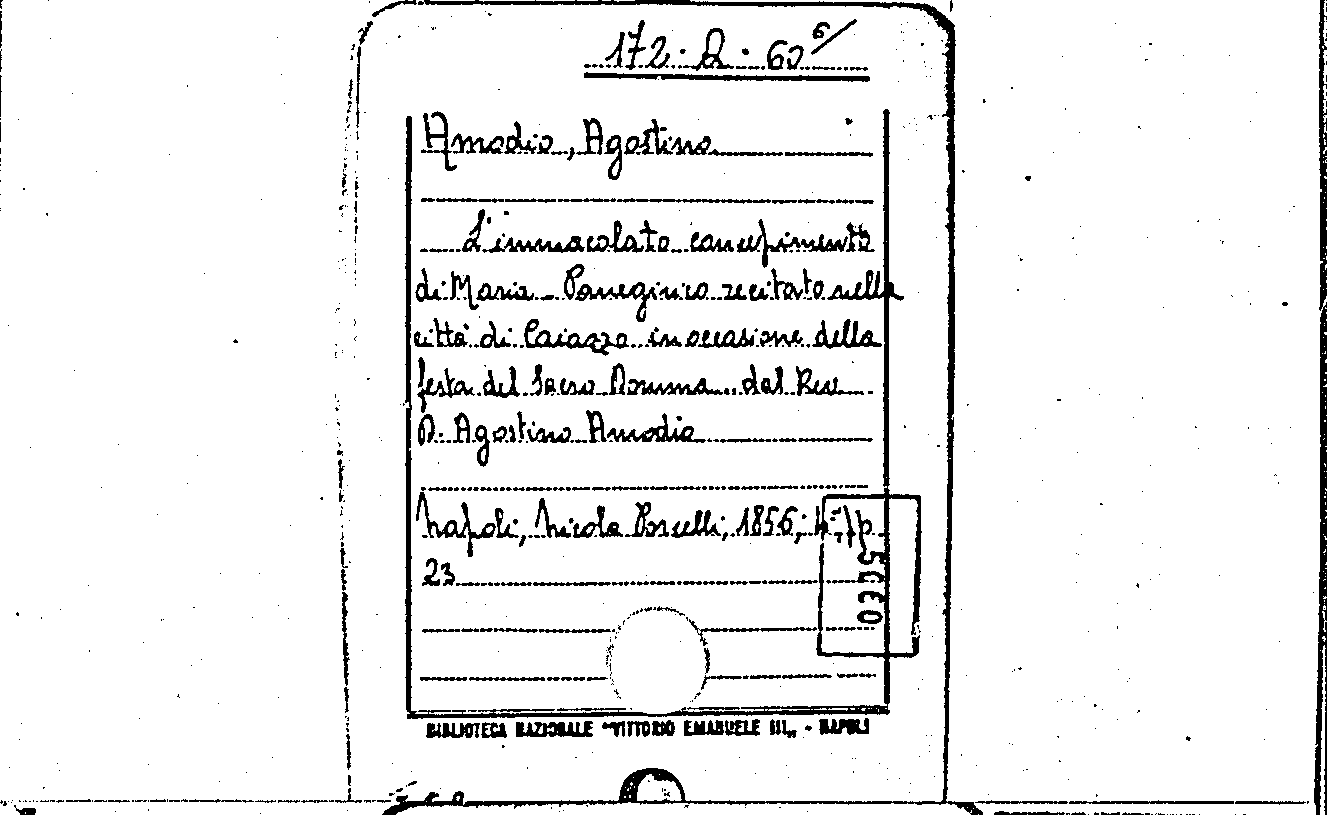 172. Q. 60 6/
Amodio, Agostino
L'immacolato concepimento
di Maria - Panegirico recitato nella
città di Caiazzo in occasione della
festa del Sacro Domma.. dal Rev
D. Agostino Amodio
Napoli, Nicola Porcelli, 1856; pp
23
BIBLIOTECA NAZIONALE "VITTORIO EMANUELE III„ - NAPOLI